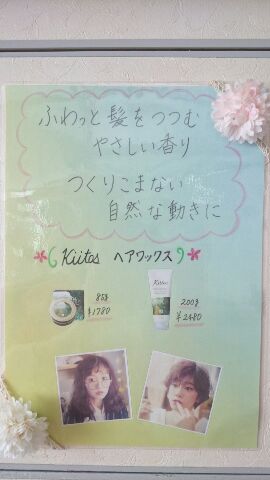 ふわっと髪をつつむ
やさしい香り
つくりこまない
自然な動きに
Kiitos ヘアワックス
85g
¥1780
200g
¥2480